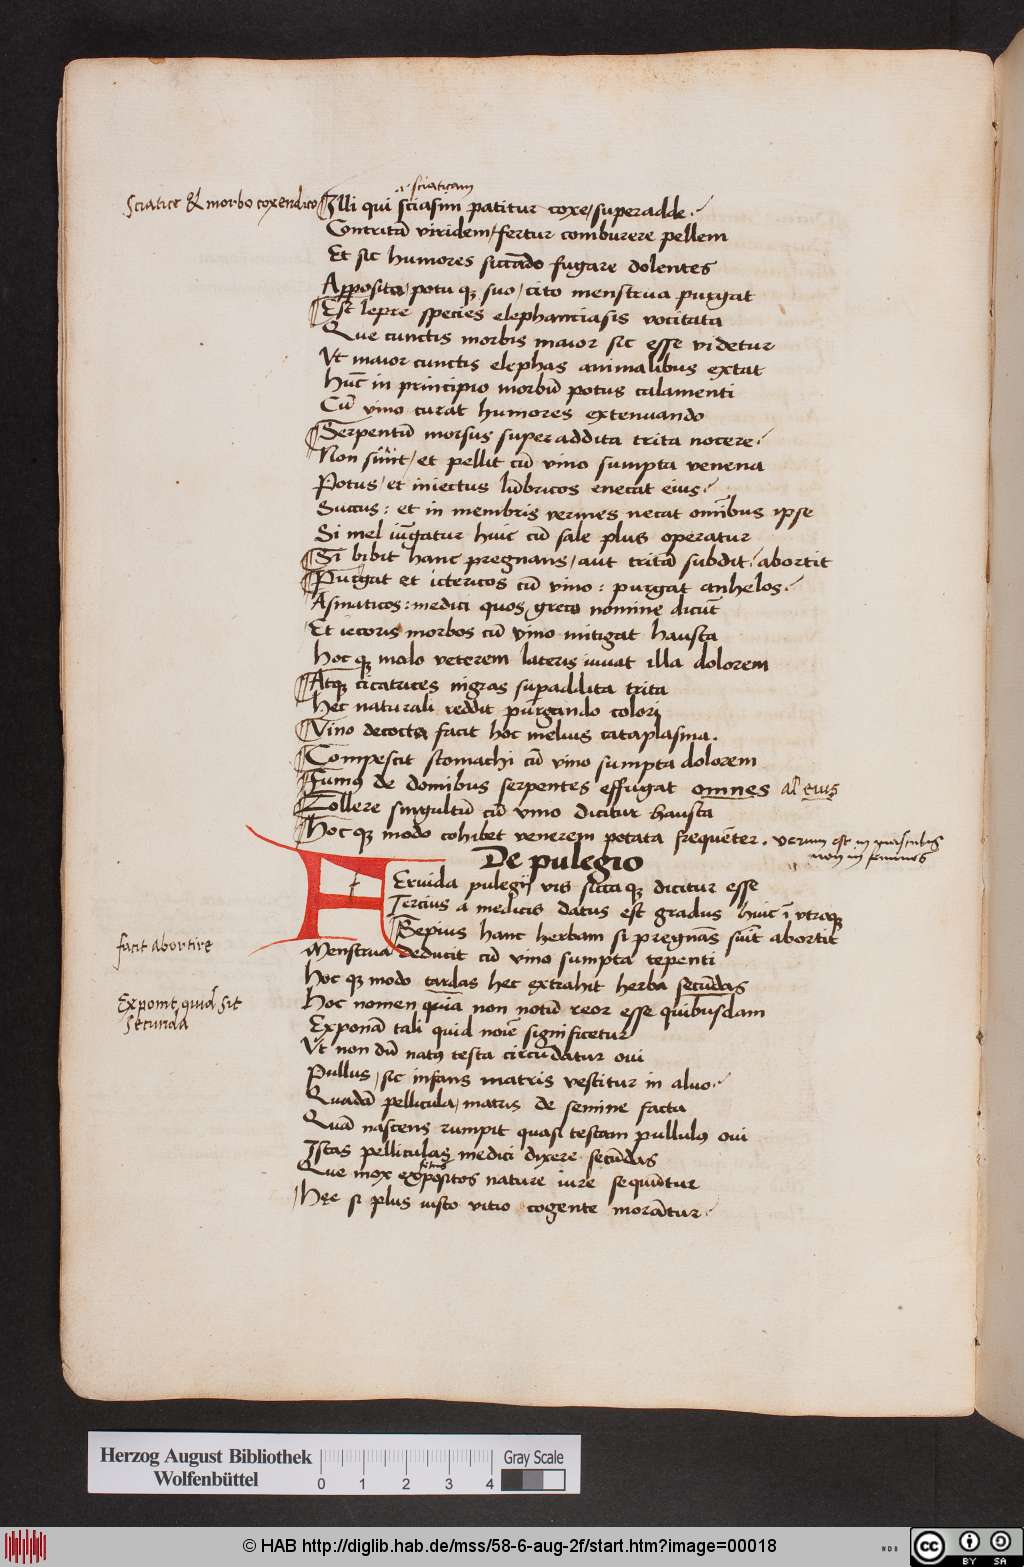 a· sciaticam
Sciatice & morbo coxendico
Illi qui sciasim patitur coxe/superadde·/
Contritā viridem/fertur comburere pellem
Et sic humores siccādo fugare dolentes
Apposita/potu qꝫ suo/cito menstrua purgat
Est lepre species elephanciasis vocitata
Que cunctis morbis maior sic esse videtur
Vt maior cunctis elephas animalibus extat
Hūc in principio morbū potus calamenti
Cū vino curat humores extenuando
Serpentū morsus superaddita trita nocere·/
Non sinit/et pellit cū vino sumpta venena
Potus/et iniectus lūbricos enecat eius·/
Succus: et in membris vermes necat omībus ipse
Si mel iūgatur huic cū sale plus operatur
Si bibit hanc pregnans/aut tritā subdit·/abortit
Purgat et ictericos cū vino: purgat anhelos·/
Asmaticos: medici quos greco nomine dicūt
Et iecoris morbos cū vino mitigat hausta
Hoc qꝫ malo veterem lateris iuuat illa dolorem
Atqꝫ cicatrices nigras suꝑaddita trita
Hec naturali reddit purgando colori
Vino decocta facit hoc melius cataplasma.
Compescit stomachi cū vino sumpta dolorem
Fumꝰ de domibus serpentes effugat omnes al eius
Tollere singultū cū vino dicitur hausta
Hoc qꝫ modo cohibet venerem potata frequēter. verum est in masculis
non in feminis
De pulegio
Feruida pulegij vis sicca qꝫ dicitur esse
Tercius a medicis datus est gradus huic ī vtroqꝫ
Sepius hanc herbam si pregnās sūit abortit
facit abortire
Menstrua deducit cū vino sumpta tepenti
Hoc qꝫ modo tardas hec extrahit herba secūdas
Exponit quid sit
secunda
Hoc nomen quia non notū reor esse quibusdam
Exponā tali quid noīe significetur
Vt non dū natꝰ testa circūdatur oui
Pullus/sic infans matris vestitur in aluo·/
Quadā pellicula/matris de semine facta
Quā nascens rumpit quasi testam pullulꝰ oui
Istas pelliculas medici dixere secūdas
Que mox expositos nature iure sequūtur
Hęc si plus iusto vitio cogente morātur·/
Herzog August Bibliothek
Wolfenbüttel
0 1 2 3 4
Gray Scale
© HAB http://diglib.hab.de/mss/58-6-aug-2f/start.htm?image=00018
WDB
cc BY SA